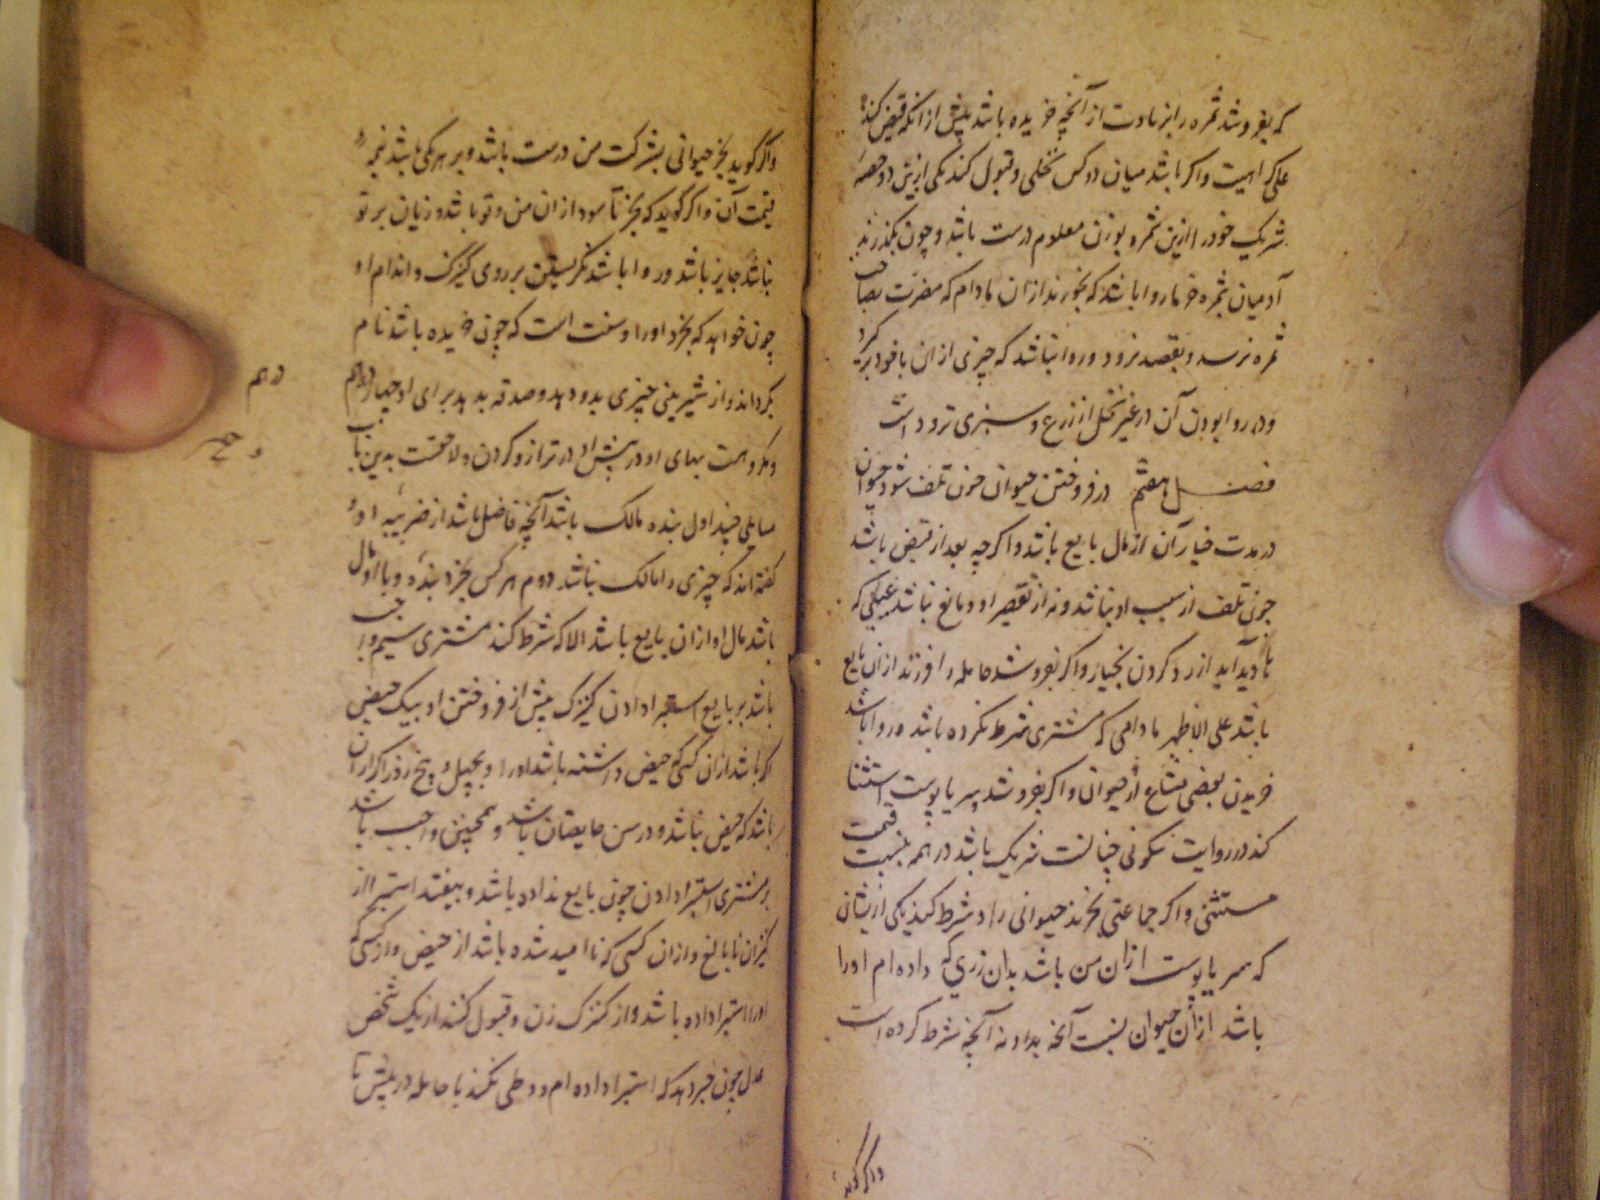 که بفروشد ثمره را بزیادت از آنچه خریده باشد پیش از آنکه قبض کند
علی کراهیت و اگر باشد میان دو کس نخلی و قبول کند یکی ازین دو حصهٔ
شریک خود را ازین ثمره بوزن معلوم درست باشد و چون بگذرند
آدمیان بثمره خرما روا باشد که بخورند از آن مادام که مضرت بصاحب
ثمره نرسد و بقصد نرود و روا نباشد که چیزی از آن با خود برگیرد
و در روا بودن آن در غیر نخل از زرع و سبزی تردد است
فصل هفتم در فروختن حیوان چون تلف شود حیوان
در مدت خیار آن از مال بایع باشد و اگر چه بعد از قبض باشد
چون تلف از سبب او نباشد و نه از تقصیر او و مانع نباشد عیبی که
پدید آید از رد کردن بخیار و اگر بفروشد حامله را فرزند از آن بایع
باشد علی الاظهر مادامی که مشتری شرط نکرده باشد و روا باشد
خریدن بعضی مشاع از حیوان و اگر بفروشد سر یا پوست استثنا
کند در روایت سکونی چنانست شریک باشد در همه بنسبت قیمت
مستثنی و اگر جماعتی بخرند حیوانی را و شرط کند یکی ازیشان
که سر یا پوست از آن من باشد بدان زری که داده ام او را
باشد از آن حیوان بنسبت آنچه بداد نه آنچه شرط کرده است
و اگر گوید
و اگر گوید بخر حیوانی بشرکت من درست باشد و بر هر یکی باشد نیمهٔ
قیمت آن و اگر گوید که بخر تا سود از آن من و تو باشد و زیان بر تو
نباشد جایز باشد و روا باشد نگریستن بر روی کنیزک و اندام او
چون خواهد که بخرد او را و سنت است که چون خریده باشد نام
بگرداند و از شیرینی چیزی بدو دهد و صدقه بدهد برای او چهار درهم
درهم
و مکروهست بهای او در پیش او در ترازو کردن و لاحقست بدین باب
مسایلی چند اول بنده مالک باشد آنچه فاضل باشد از ضریبه او و
گفته اند که چیزی را مالک نباشد دوم هر کس بخرد بندهٔ و با او مال
باشد مال او از آن بایع باشد الا که شرط کند مشتری سیم واجب
باشد بر بایع استبرا دادن کنیزک پیش از فروختن او بیک حیض
اگر باشد از آن کسی که حیض داشته باشد او را و بچهل و پنج روز اگر از آن
باشد که حیض نباشد و در سن حایضان باشد و همچنین واجب باشد
بر مشتری استبرا دادن چون بایع نداده باشد و بیفتد استبرا از
کنیزان نابالغ و از آن کسی که ناامید شده باشد از حیض و از کسی که
او را استبرا داده باشد و از کنیزک زن و قبول کنند از یک شخص
عدل چون خبر دهد که استبرا داده ام و وطی نکند با حامله در پیش تا